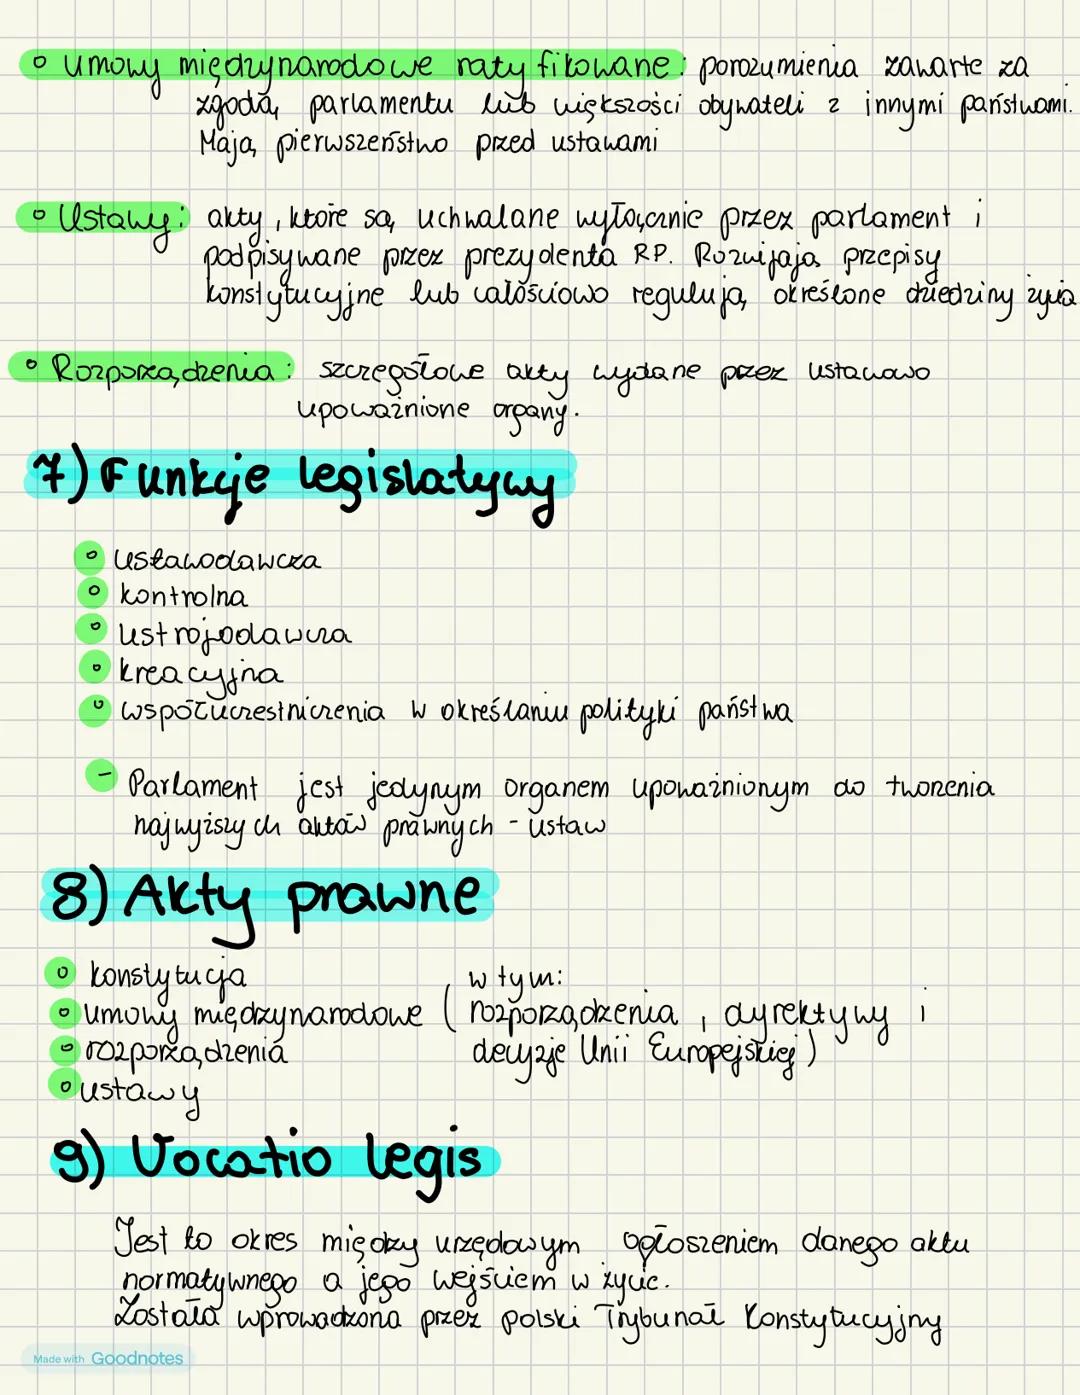 ° Umowy międzynarodowe ratyfikowane: porozumienia zawarte za
zgodą parlamentu lub większości obywateli z innymi państwami.
Mają pierwszeństwo przed ustawami
° Ustawy: akty, które są uchwalane wyłącznie przez parlament i
podpisywane przez prezydenta RP. Rozwijają przepisy
konstytucyjne lub całościowo regulują określone dziedziny życia
° Rozporządzenia: szczegółowe akty wydane przez ustawowo
upoważnione organy.
7) Funkcje legislatywy
° ustawodawcza
° kontrolna
° ustrojodawcza
° kreacyjna
° współuczestniczenia w określaniu polityki państwa
- Parlament jest jedynym organem upoważnionym do tworzenia
najwyższych aktów prawnych - ustaw
8) Akty prawne
° konstytucja w tym:
° umowy międzynarodowe ( rozporządzenia, dyrektywy i
° rozporządzenia decyzje Unii Europejskiej)
° ustawy
9) Vocatio legis
Jest to okres między urzędowym ogłoszeniem danego aktu
normatywnego a jego wejściem w życie.
Została wprowadzona przez polski Trybunał Konstytucyjny
Made with Goodnotes